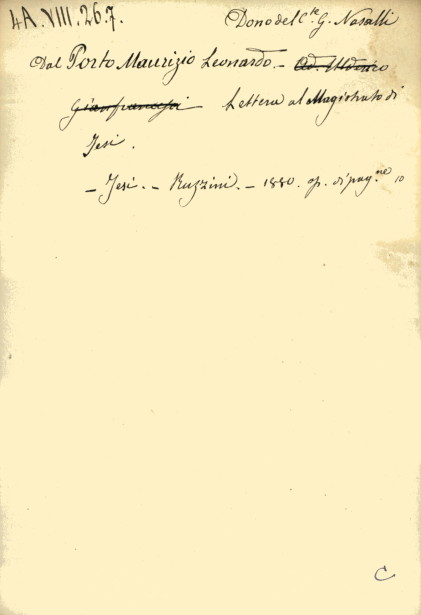 4A.VIII.26.7.
Dono del C.te G. Nasalli
Dal Porto Maurizio Leonardo. –
Gianfranceschi Lettera al Magistrato di
Jesi.
– Jesi. – Ruzzini. – 1880. op. di pag.ne 10
C